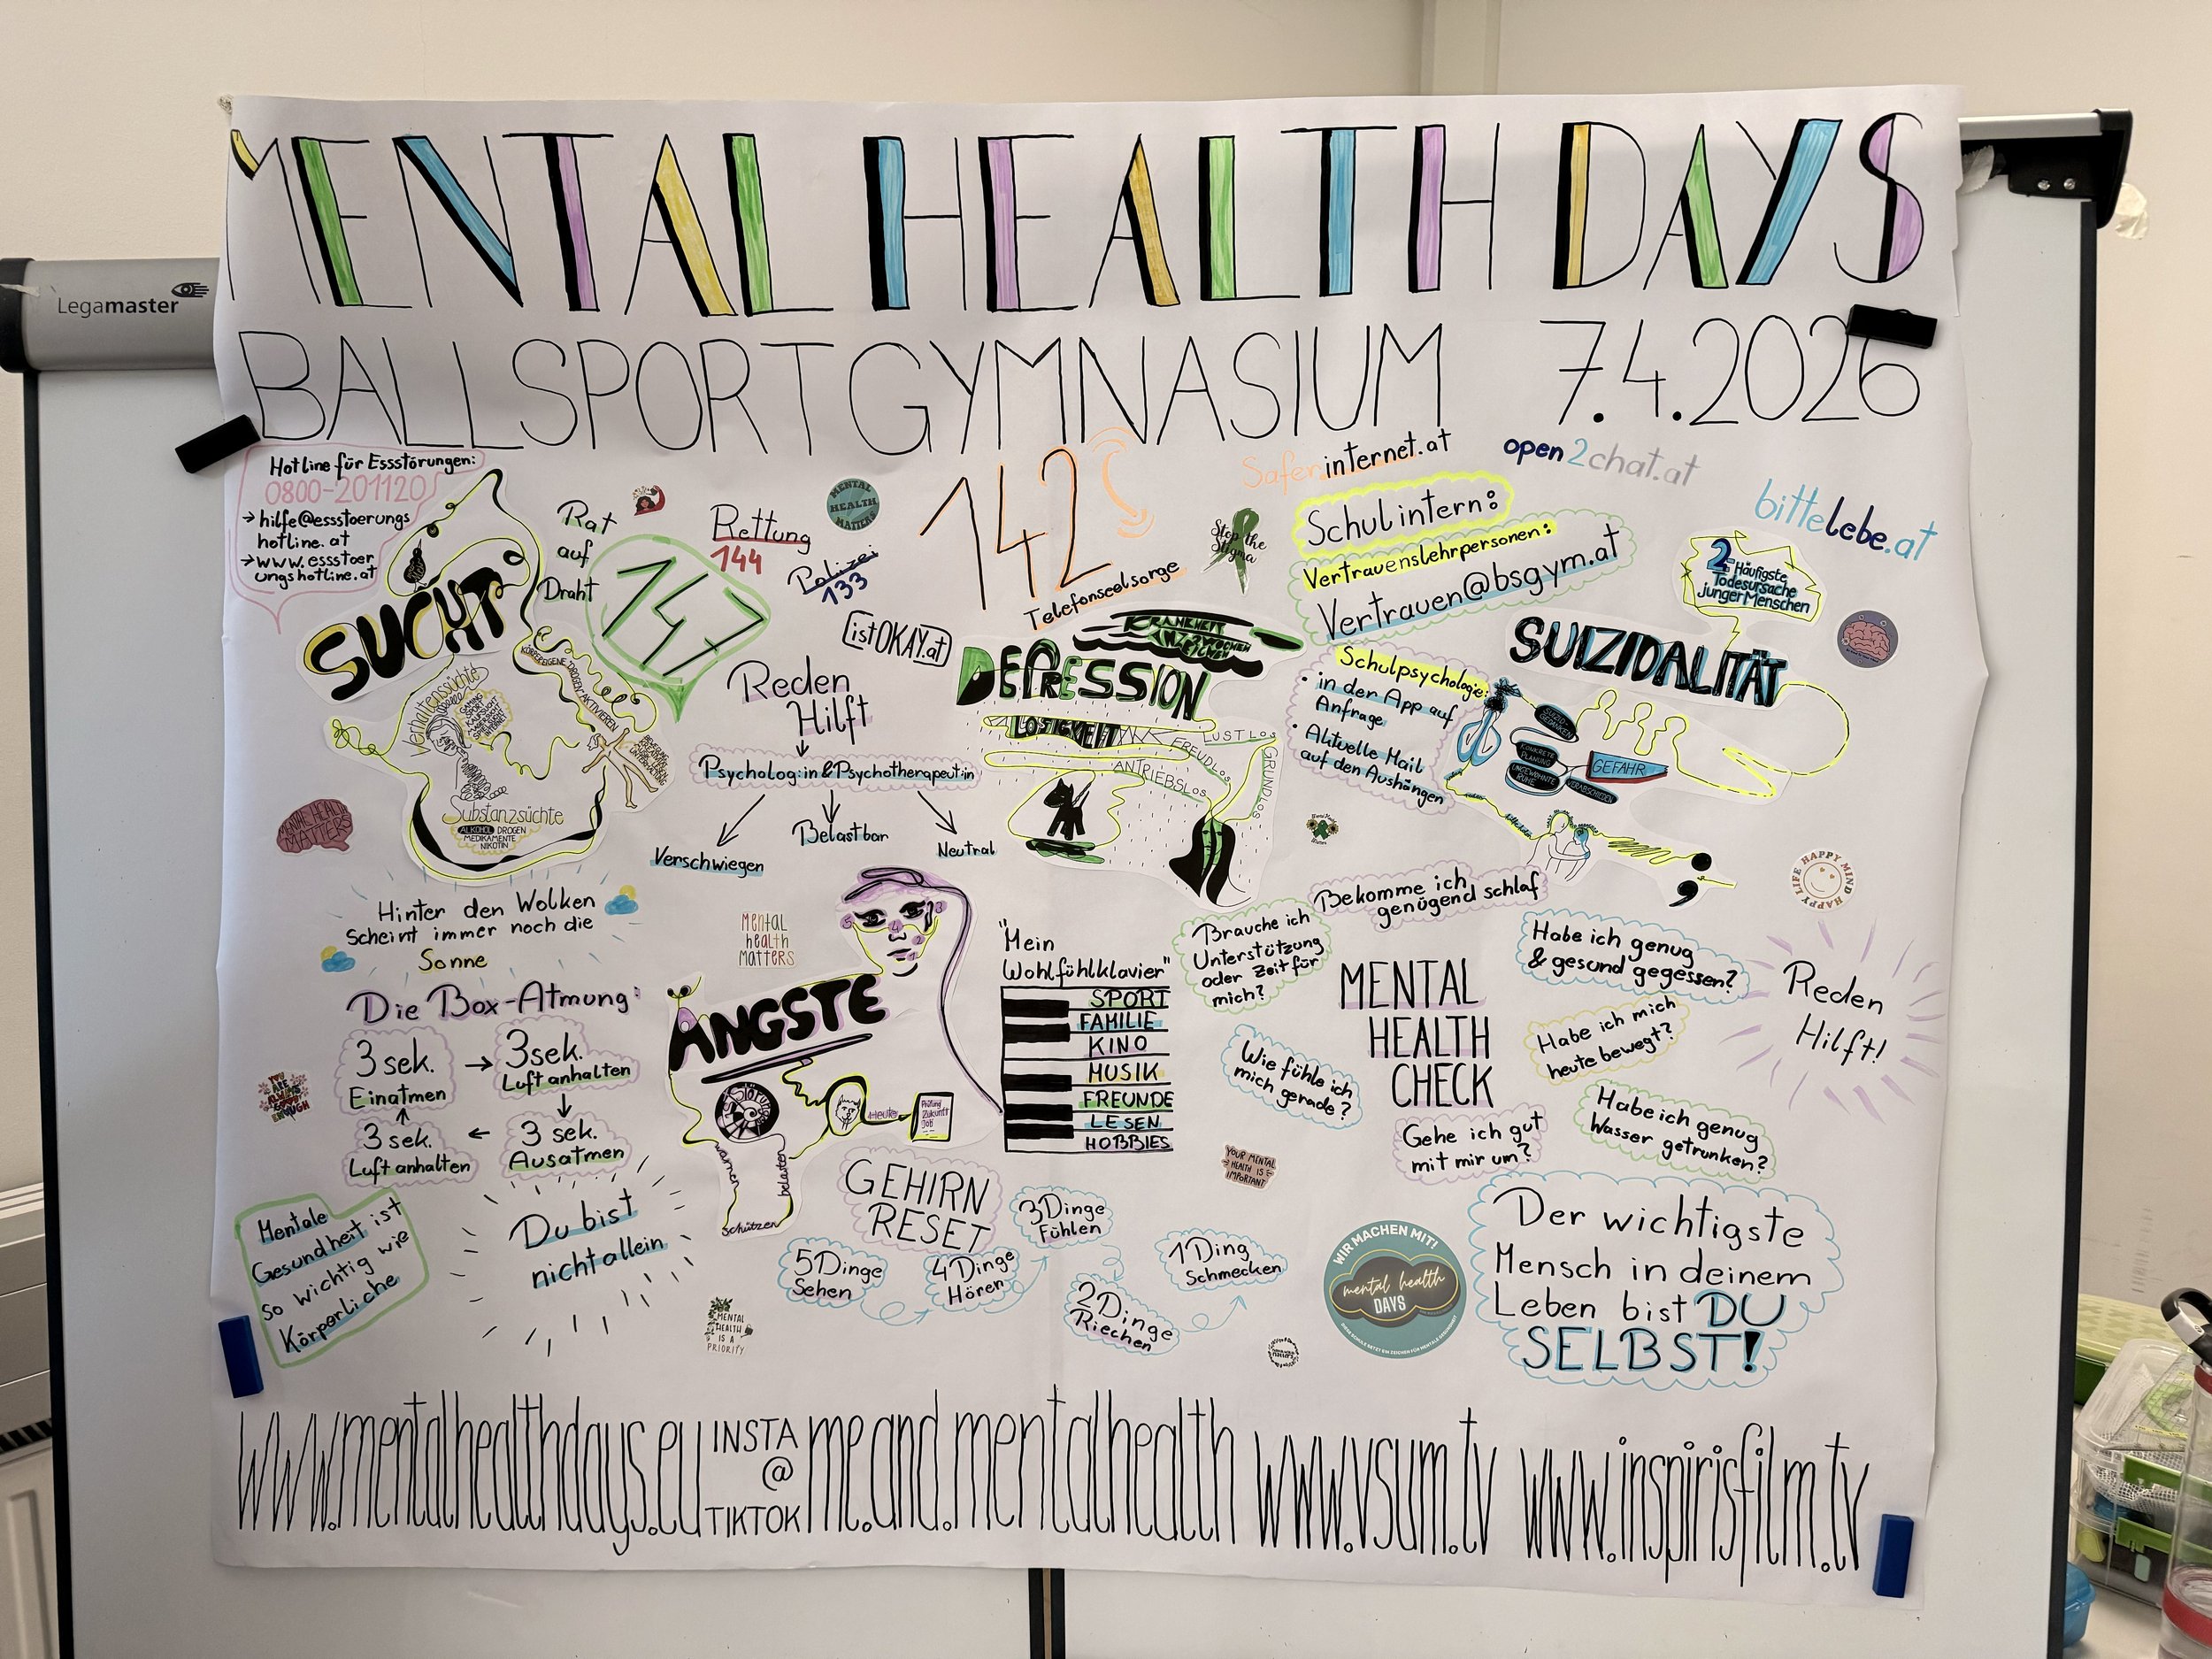 MENTAL HEALTH DAYS
BALLSPORTGYMNASIUM 7.4.2026
Legamaster
Hotline für Essstörungen:
0800-201120
→ hilfe@essstoerungs
hotline.at
→ www.essstoer
ungshotline.at
Rat
auf
Draht
147
Rettung
144
Polizei
133
MENTAL
HEALTH
MATTERS
142
Telefonseelsorge
Saferinternet.at
open2chat.at
bittelebe.at
Stop the
Stigma
Schulintern:
Vertrauenslehrpersonen:
Vertrauen@bsgym.at
Schulpsychologie:
• in der App auf
Anfrage
• Aktuelle Mail
auf den Aushängen
istOKAY.at
SUCHT
KÖRPEREIGENE DROGEN AKTIVIEREN
Verhaltenssüchte
Substanzsüchte
ALKOHOL DROGEN
MEDIKAMENTE
NIKOTIN
Reden
Hilft
Psycholog:in & Psychotherapeut:in
Verschwiegen
Belastbar
Neutral
DEPRESSION
KRANKHEIT
LOSIGKEIT
LUSTLOS
FREUDLOS
ANTRIEBSLOS
GRUNDLOS
2.
Häufigste
Todesursache
junger Menschen
SUIZIDALITÄT
SUIZID-
GEDANKEN
KONKRETE
PLANUNG
UNGEWOHNTE
RUHE
VERABSCHIEDEN
GEFAHR
MENTAL HEALTH
MATTERS
HAPPY MIND
HAPPY LIFE
Hinter den Wolken
Scheint immer noch die
Sonne
Mental
health
MATTERS
Die Box-Atmung:
3 sek.
Einatmen
→ 3 sek.
Luft anhalten
3 sek.
Ausatmen
3 sek.
Luft anhalten
YOU
ARE
ALWAYS
GOOD
ENOUGH
ÄNGSTE
5
4
3
2
1
warnen
belasten
schützen
Heute
Prüfung
Zukunft
Job
"Mein
Wohlfühlklavier"
SPORT
FAMILIE
KINO
MUSIK
FREUNDE
LESEN
HOBBIES
MENTAL
HEALTH
CHECK
Brauche ich
Unterstützung
oder Zeit für
mich?
Bekomme ich
genügend schlaf
Habe ich genug
& gesund gegessen?
Habe ich mich
heute bewegt?
Wie fühle ich
mich gerade?
Gehe ich gut
mit mir um?
Habe ich genug
Wasser getrunken?
Reden
Hilft!
YOUR MENTAL
HEALTH IS
IMPORTANT
Mentale
Gesundheit ist
so wichtig wie
Körperliche
Du bist
nicht allein
GEHIRN
RESET
5 Dinge
Sehen
4 Dinge
Hören
3 Dinge
Fühlen
2 Dinge
Riechen
1 Ding
Schmecken
MENTAL
HEALTH
IS A
PRIORITY
WIR MACHEN MIT!
mental health
DAYS
Der wichtigste
Mensch in deinem
Leben bist DU
SELBST!
www.mentalhealthdays.eu INSTA @ TIKTOK me.and.mentalhealth www.vsum.tv www.inspirisfilm.tv